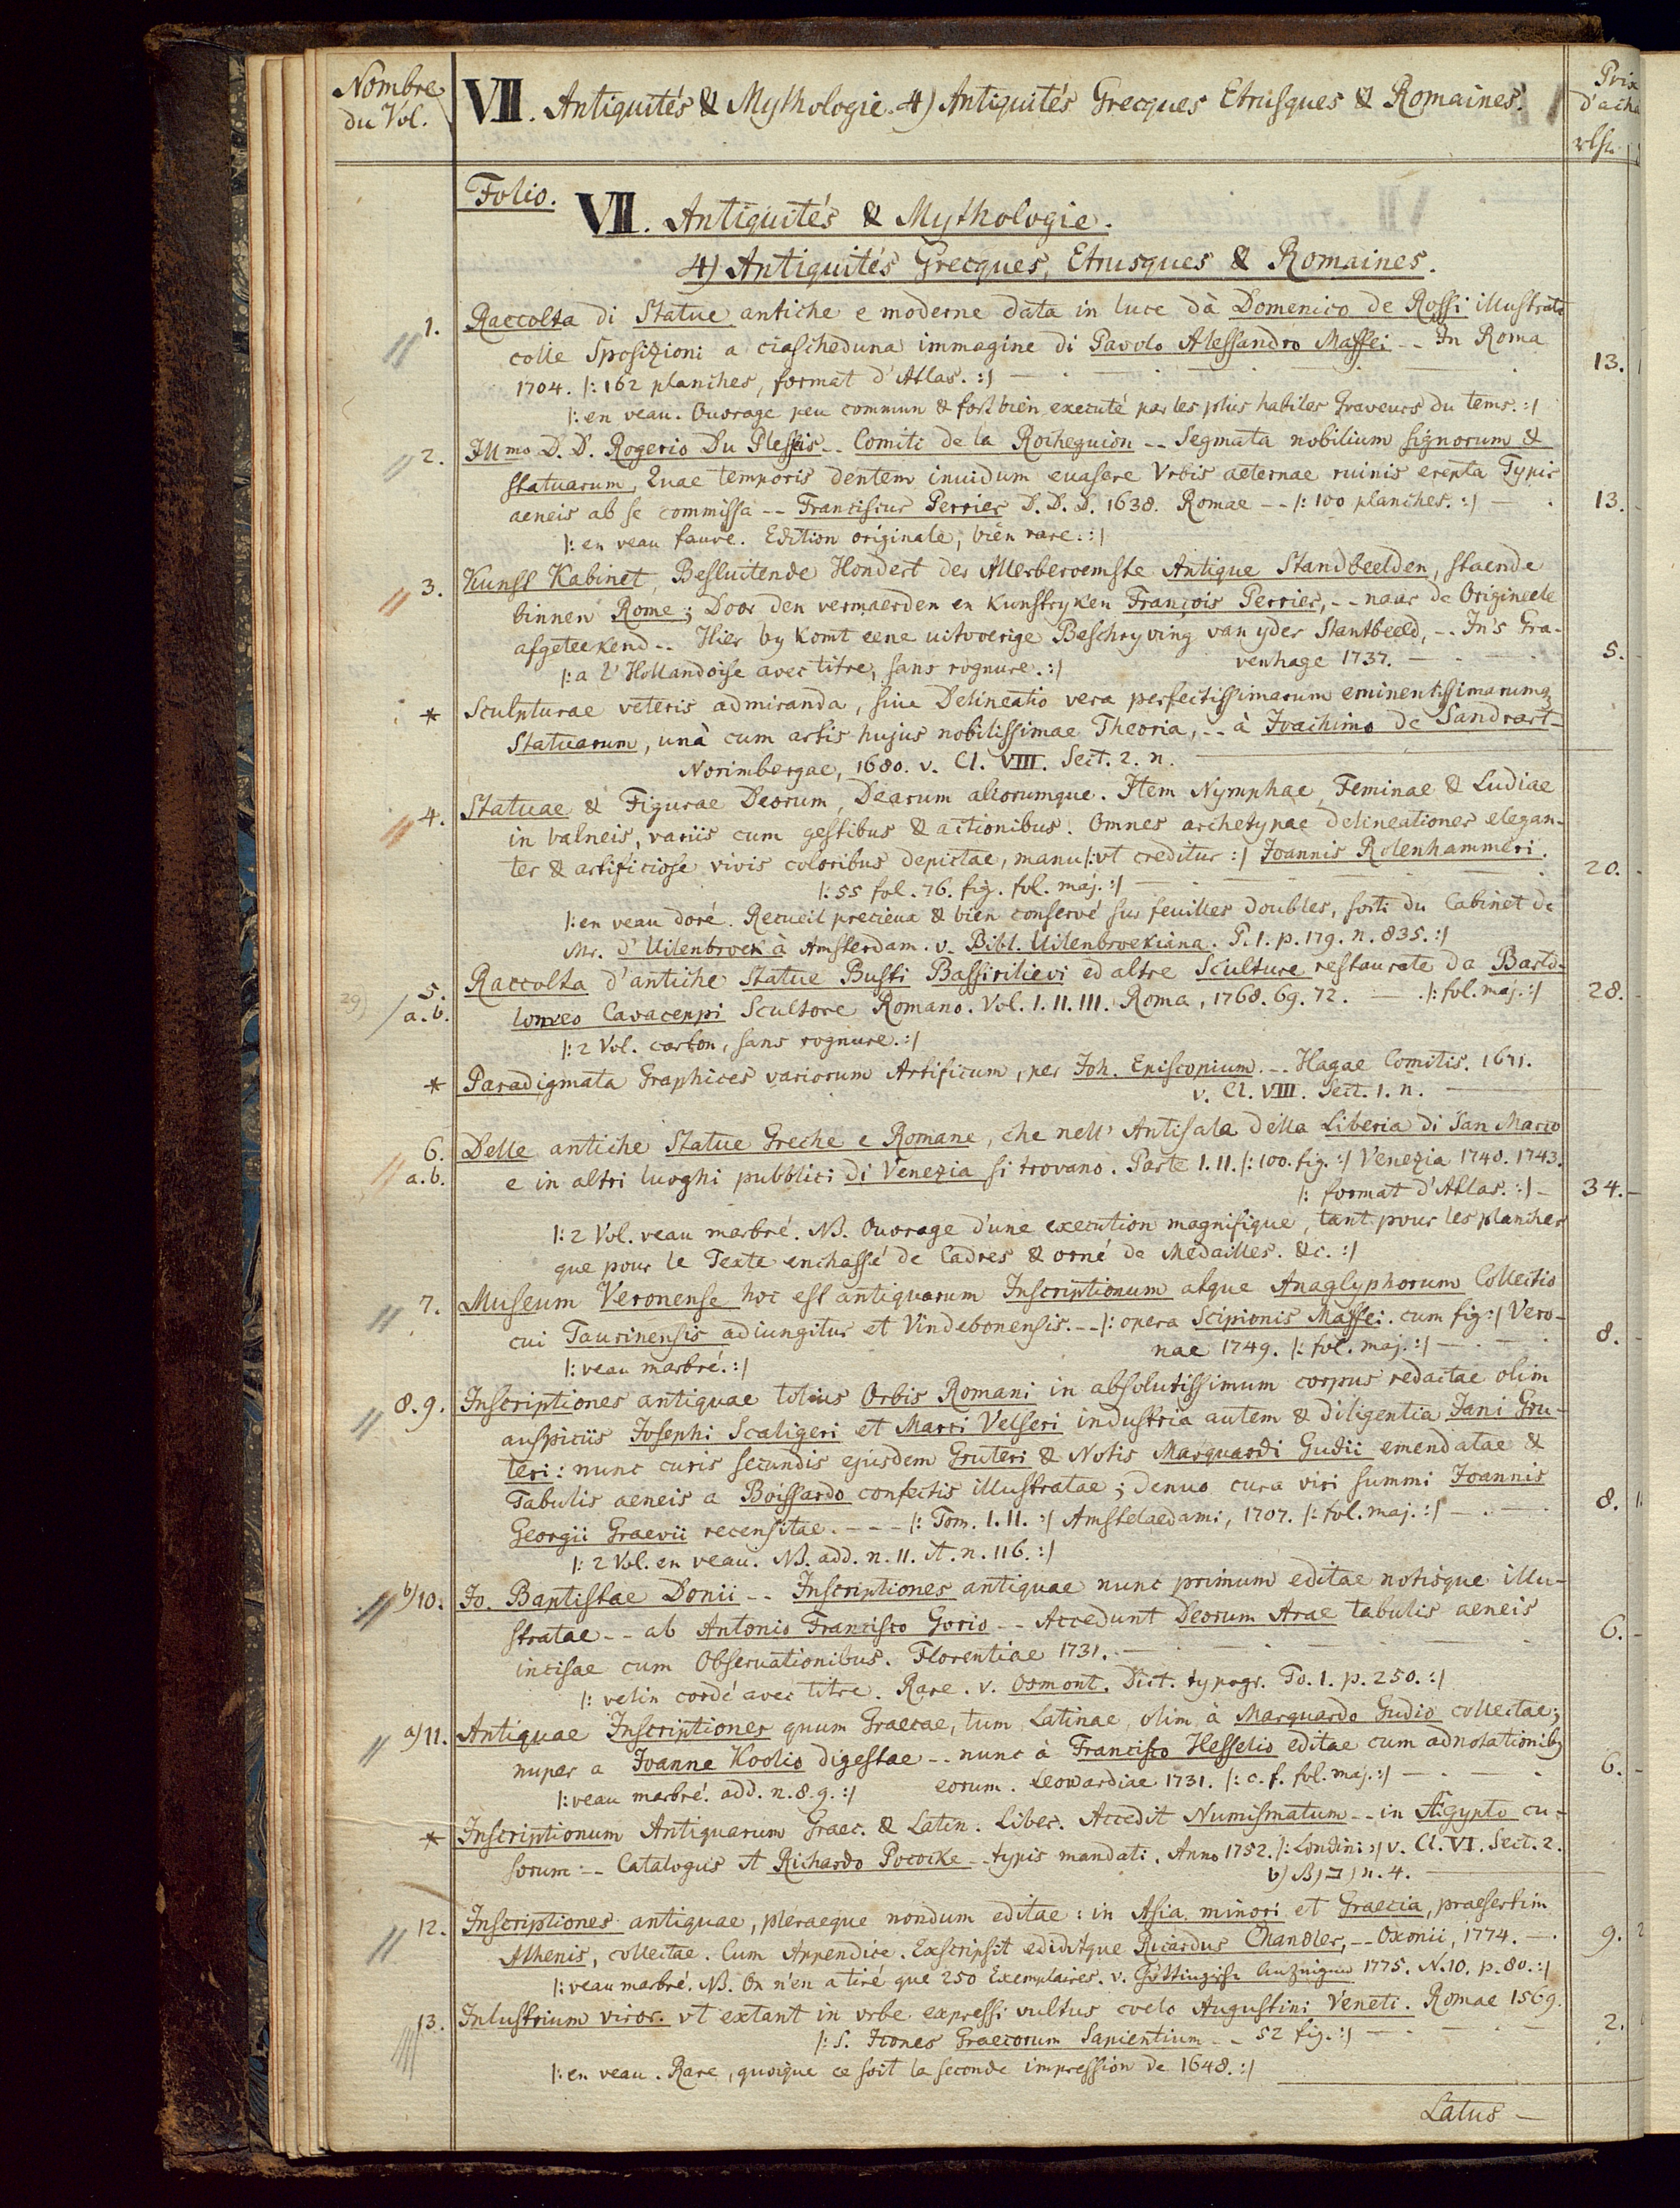 Nombre
du Vol.
VII. Antiquités & Mythologie. 4) Antiquités Grecques Etrusques & Romaines.
Prix
d'acha
rlh.
Folio.
VII. Antiquités & Mythologie.
4) Antiquités Grecques, Etrusques & Romaines.
1. Raccolta di Statue antiche e moderne data in luce dà Domenico de Rossi illustrata
colle Sposizioni a ciascheduna immagine di Pavolo Alessandro Maffei -- In Roma
1704. |: 162 planches, format d'Atlas. :| 13.
|: en veau. Ouvrage peu commun & fort bien executé par les plus habiles Graveurs du tems. :|
2. Illmo D. D. Rogerio Du Plessis -- Comiti de la Rocheguion -- Segmata nobilium signorum &
statuarum, Quae temporis dentem inuidum euasere Vrbis aeternae ruinis erepta Typis
aeneis ab se commissa -- Franciscus Perrier D. D. D. 1638. Romae -- |: 100 planches. :| 13.
|: en veau fauve. Edition originale, bien rare. :|
3. Kunst Kabinet, Besluitende Hondert der Allerberoemste Antique Standbeelden, staende
binnen Rome; Door den vermaerden en Kunstryken François Perrier, -- naar de Origineele
afgeteekend -- Hier by komt eene uitvoerige Beschryving van yder Stantbeeld, -- In's Gra-
|: a l'Hollandoise avec titre, sans rognure. :| venhage 1737. 5.
* Sculpturae veteris admiranda, siue Delineatio vera perfectissimarum eminentissimarumq;
Statuarum, unà cum artis hujus nobilissimae Theoria, -- à Joachimo de Sandrart -
Norimbergae, 1680. v. Cl. VIII. Sect. 2. n.
4. Statuae & Figurae Deorum, Dearum aliorumque. Item Nymphae, Feminae & Ludiae
in balneis, variis cum gestibus & actionibus. Omnes archetypae delineationes elegan-
ter & artificiose vivis coloribus depictae, manu |: vt creditur :| Joannis Rotenhammeri.
|: 55 fol. 76. fig. fol. maj. :| 20.
|: en veau doré. Recueil precieux & bien conservé sur feuilles doubles, sorti du Cabinet de
Mr. d'Uilenbroek à Amsterdam. v. Bibl. Uilenbroekiana. P. 1. p. 179. n. 835. :|
29) 5. a. b. Raccolta d'antiche Statue Busti Bassirilievi ed altre Sculture restaurate da Barto-
lomeo Cavaceppi Scultore Romano. Vol. I. II. III. Roma, 1768. 69. 72. |: fol. maj. :| 28.
|: 2 Vol. carton, sans rognure. :|
* Paradigmata Graphices variorum Artificum, per Joh. Episcopium. -- Hagae Comitis. 1671.
v. Cl. VIII. Sect. 1. n.
6. a. b. Delle antiche Statue Greche e Romane, che nell' Antisala della Liberia di San Marco
e in altri luoghi pubblici di Venezia si trovano. Parte I. II. |: 100. fig. :| Venezia 1740. 1743.
|: format d'Atlas. :| 34.
|: 2 Vol. veau marbré. NB. Ouvrage d'une execution magnifique, tant pour les planches
que pour le Texte enchassé de Cadres & orné de Medailles. &c. :|
7. Museum Veronense hoc est antiquarum Inscriptionum atque Anaglyphorum Collectio
cui Taurinensis adiungitur et Vindebonensis. -- |: opera Scipionis Maffei. cum fig :| Vero-
nae 1749. |: fol. maj. :| 8.
|: veau marbré. :|
8. 9. Inscriptiones antiquae totius Orbis Romani in absolutissimum corpus redactae olim
auspiciis Josephi Scaligeri et Marci Velseri industria autem & diligentia Jani Gru-
teri: nunc curis secundis ejusdem Gruteri & Notis Marquardi Gudii emendatae &
Tabulis aeneis a Boissardo confectis illustratae; denuo cura viri summi Joannis
Georgii Graevii recensitae. --- |: Tom. I. II. :| Amstelaedami, 1707. |: fol. maj. :| 8.
|: 2 Vol. en veau. NB. add. n. 11. it. n. 116. :|
b) 10. Jo. Baptistae Donii -- Inscriptiones antiquae nunc primum editae notisque illu-
stratae -- ab Antonio Francisco Gorio -- Accedunt Deorum Arae tabulis aeneis
incisae cum Obseruationibus. Florentiae 1731. 6.
|: velin cordé avec titre. Rare. v. Osmont. Dict. typogr. To. 1. p. 250. :|
a) 11. Antiquae Inscriptiones quum Graecae, tum Latinae, olim à Marquardo Gudio collectae;
nuper a Joanne Koolio digestae -- nunc à Francisco Hesselio editae cum adnotationib9
|: veau marbré. add. n. 8. 9. :| eorum. Leowardiae 1731. |: c. f. fol. maj. :| 6.
* Inscriptionum Antiquarum Graec. & Latin. Liber. Accedit Numismatum -- in Ægypto cu-
sorum -- Catalogus it Richardo Pococke -- typis mandati. Anno 1752. |: Londini :| v. Cl. VI. Sect. 2.
b) B) ב) n. 4.
12. Inscriptiones antiquae, pleraeque nondum editae: in Asia minori et Graecia, praesertim
Athenis, collectae. Cum Appendice. Exscripsit ediditque Ricardus Chandler, -- Oxonii, 1774. 9.
|: veau marbré. NB. On n'en a tiré que 250 Exemplaires. v. Göttingische Anzeigen 1775. N. 10. p. 80. :|
13. Inlustrium viror. vt extant in vrbe expressi vultus coelo Augustini Veneti. Romae 1569.
|: S. Icones Graecorum Sapientium -- 52 fig. :| 2.
|: en veau. Rare, quoique ce soit la seconde impression de 1648. :|
Latus -